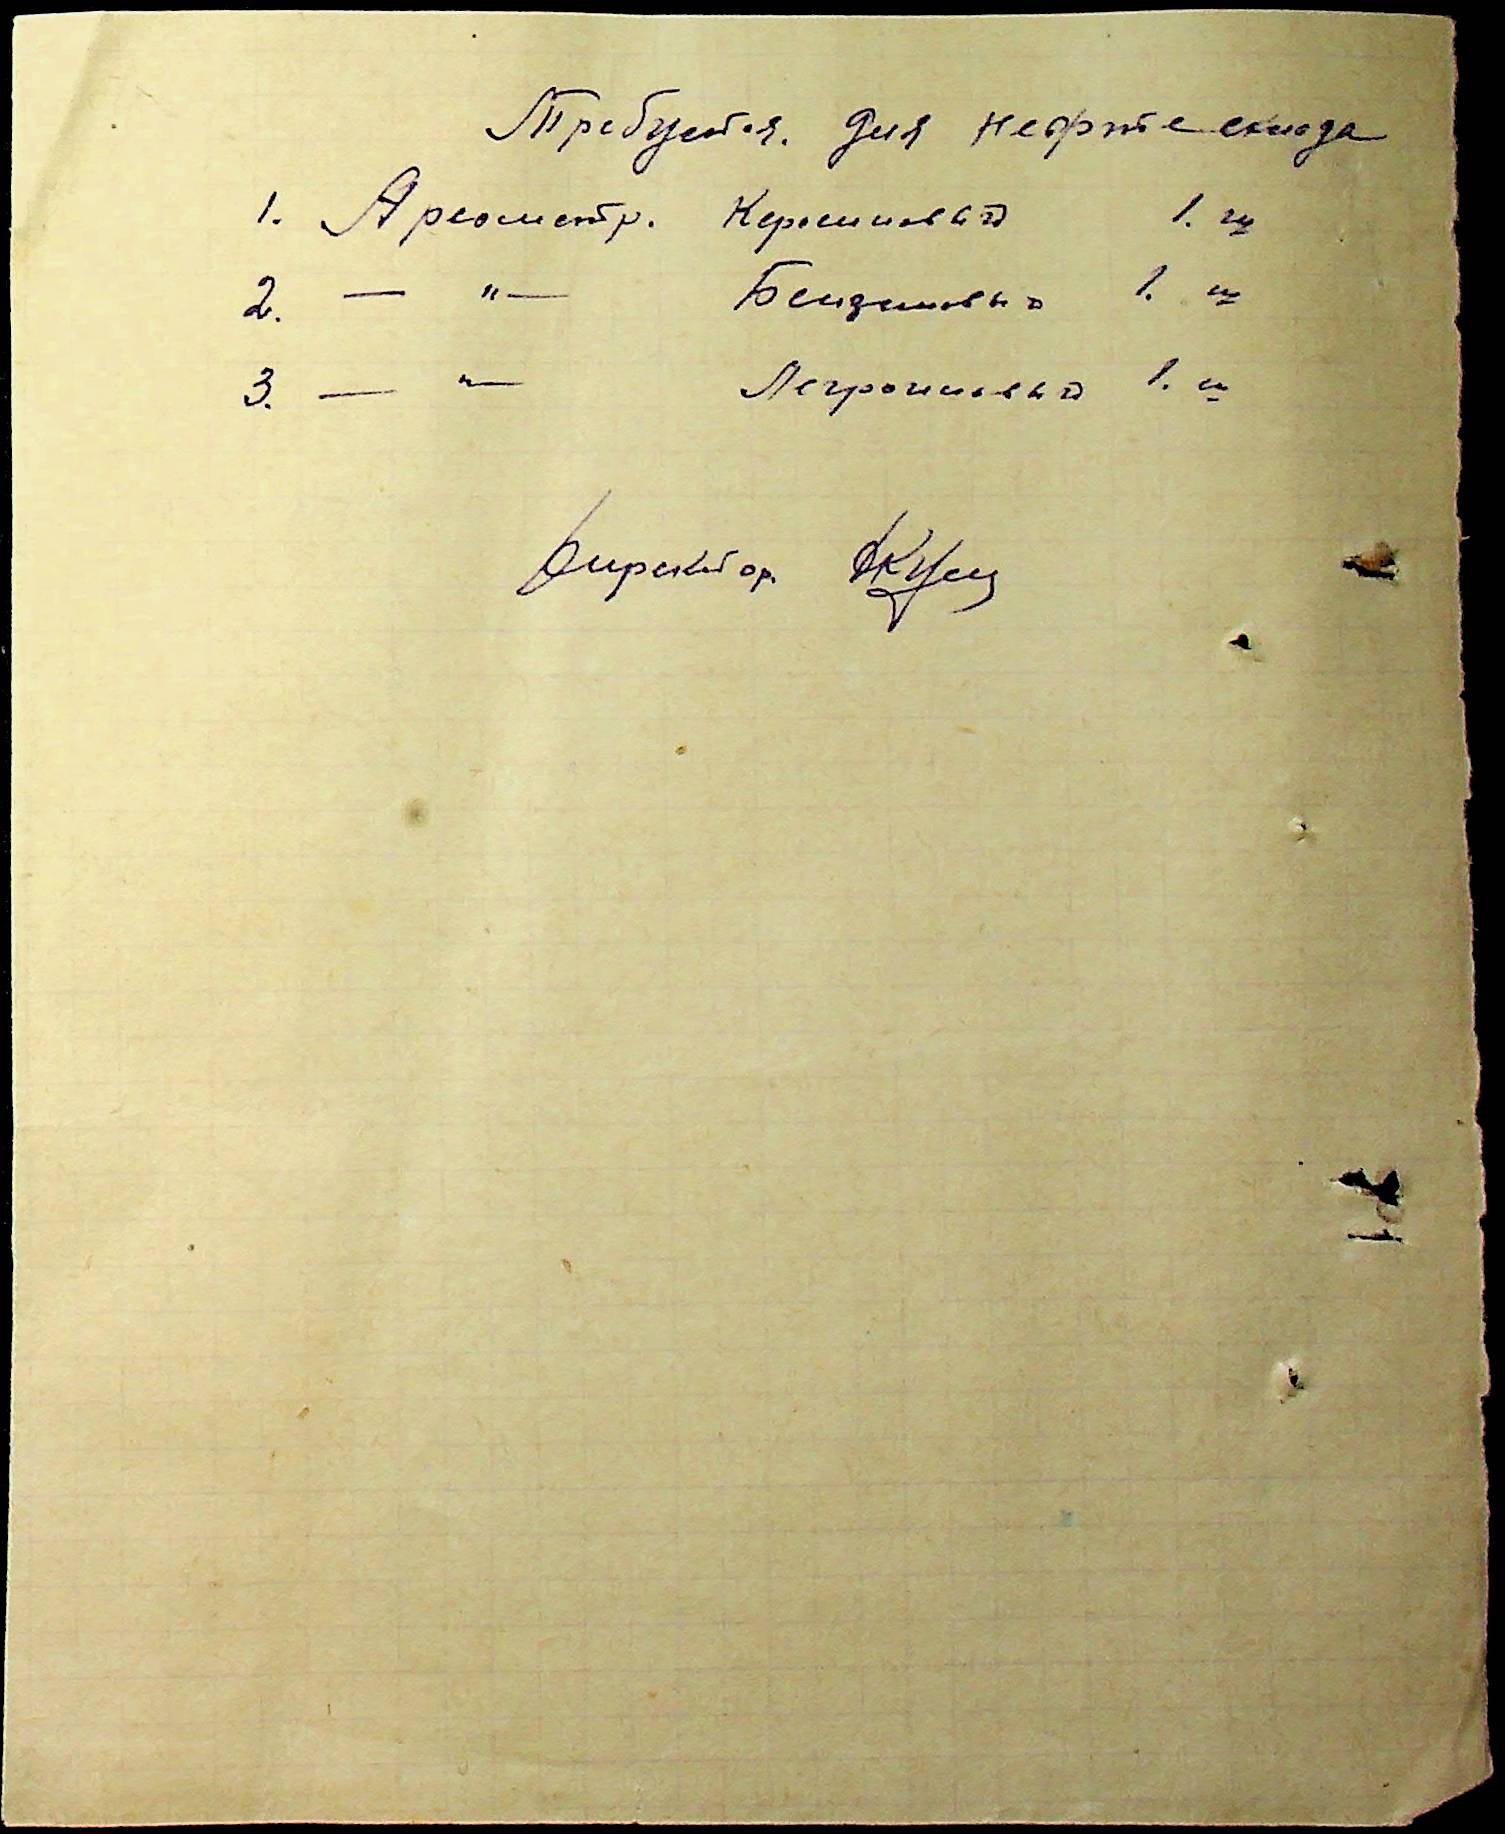 Требуется. для нефтесклада
1. Ареометр. Керосиновый 1. ш
2. — " — Бензиновый 1. ш
3. — " — Легроиновый 1. ш
Директор.